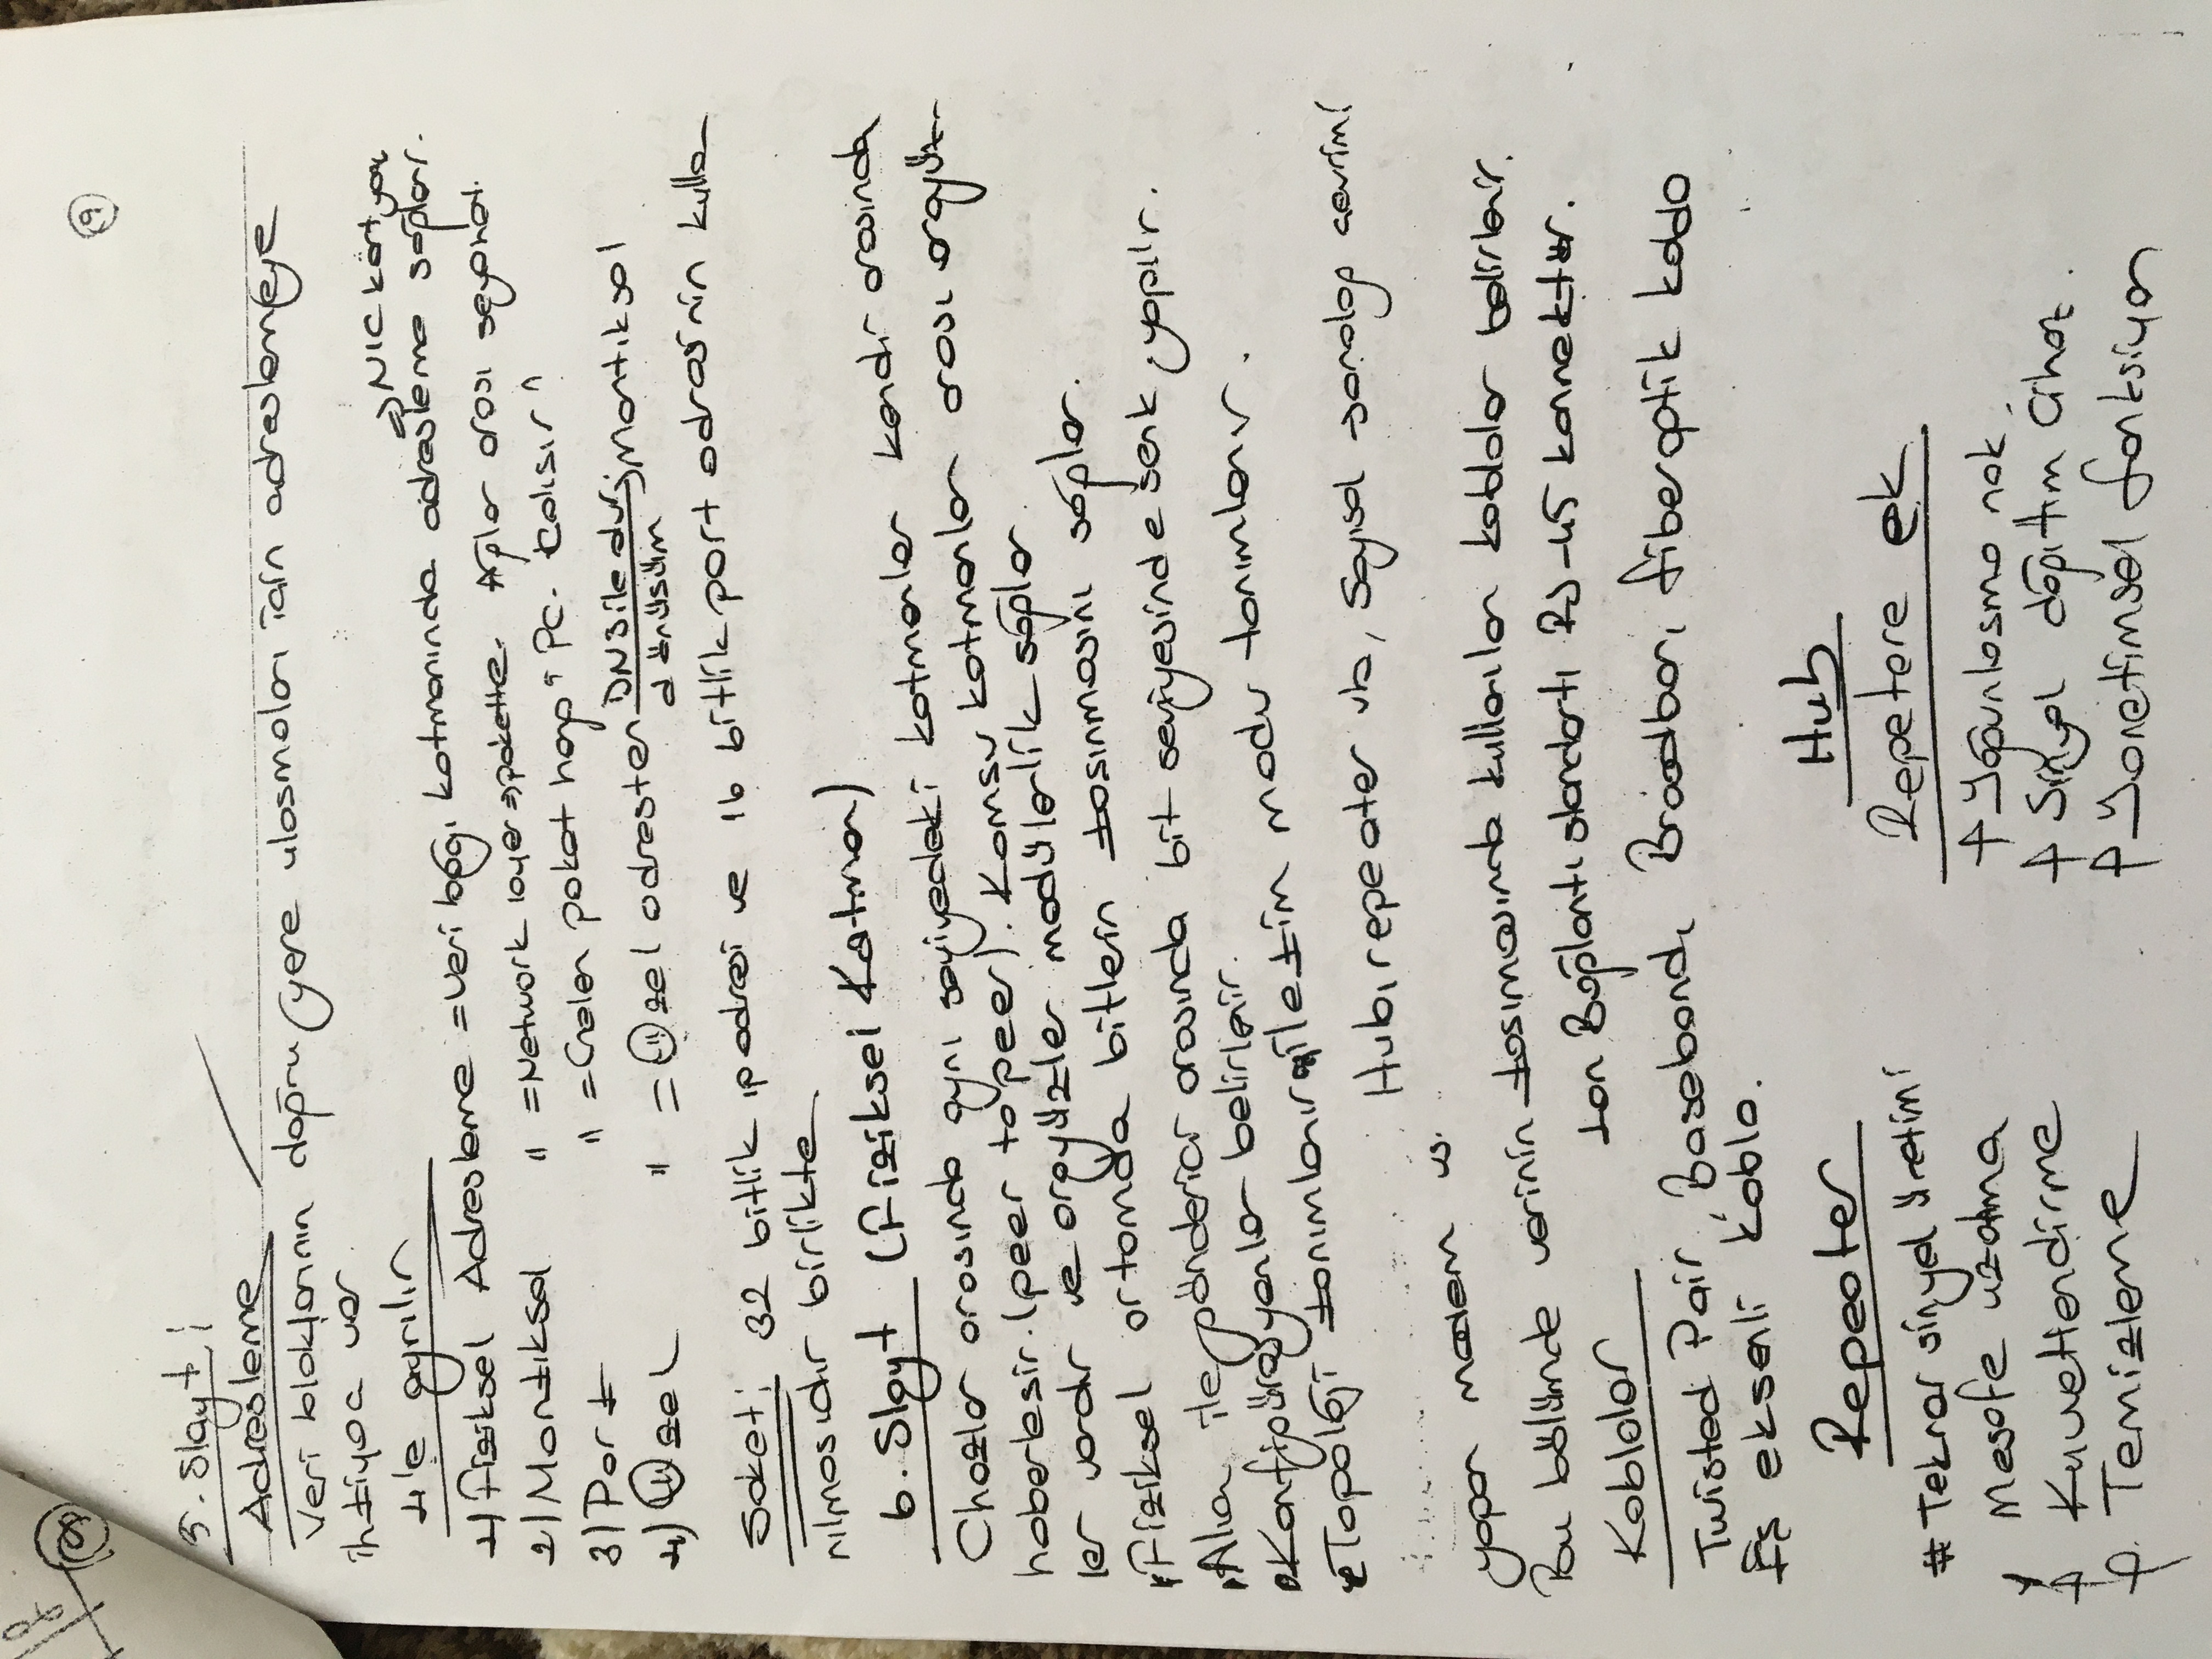 9
5. Slayt;
Adresleme
Veri bloklarının doğru yere ulaşmaları için adreslemeye
ihtiyaç var.
4'e ayrılır
⇒ NIC kart
1) Fiziksel Adresleme = Veri bağı katmanında adresleme sağlar.
2) Mantıksal " = Network layer ⇒ pakette. Ağlar arası seyahat.
3) Port " = Gelen paket hangi PC. Çalışır
4) Özel " = Özel adresten DNS ile dur; Mantıksal
dönüşüm
Soket; 32 bitlik ip adresi ve 16 bitlik port adresi'nin kulla
nılmasıdır birlikte
6. Slayt (Fiziksel Katman)
Cihazlar arasında aynı seviyedeki katmanlar kendi arasında
haberleşir. (peer to peer). Komşu katmanlar arası arayüz-
ler vardır ve arayüzler modülerlik sağlar.
Fiziksel ortamda bitlerin taşınmasını sağlar.
Alıcı ile gönderici arasında bit seviyesinde senk. yapılır.
Konfigürasyonlar belirlenir.
Topoloji tanımlanır iletim modu tanımlanır.
Hub, repeater vb, Sayısal → analog çevrimi
yapan modem vs.
Bu bölümde verinin taşımasında kullanılan kablolar belirlenir.
Kablolar
Lan Bağlantı standartı RJ-45 konnektör.
Twisted Pair, Baseband, Broadban, fiberoptik kablo
Eş eksenli kablo.
Repeater
# Tekrar sinyal üretimi
Mesafe uzatma
Kuvvetlendirme
Temizleme
Hub
Repetere ek
+ Yoğunlaşma nok.
+ Sinyal dağıtım Cihaz.
+ Yönetimsel fonksiyon